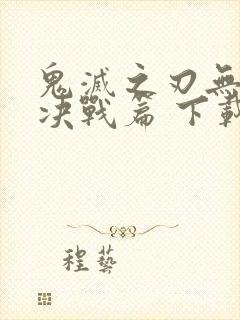 鬼滅之刃無
决戰篇 下載
程藝